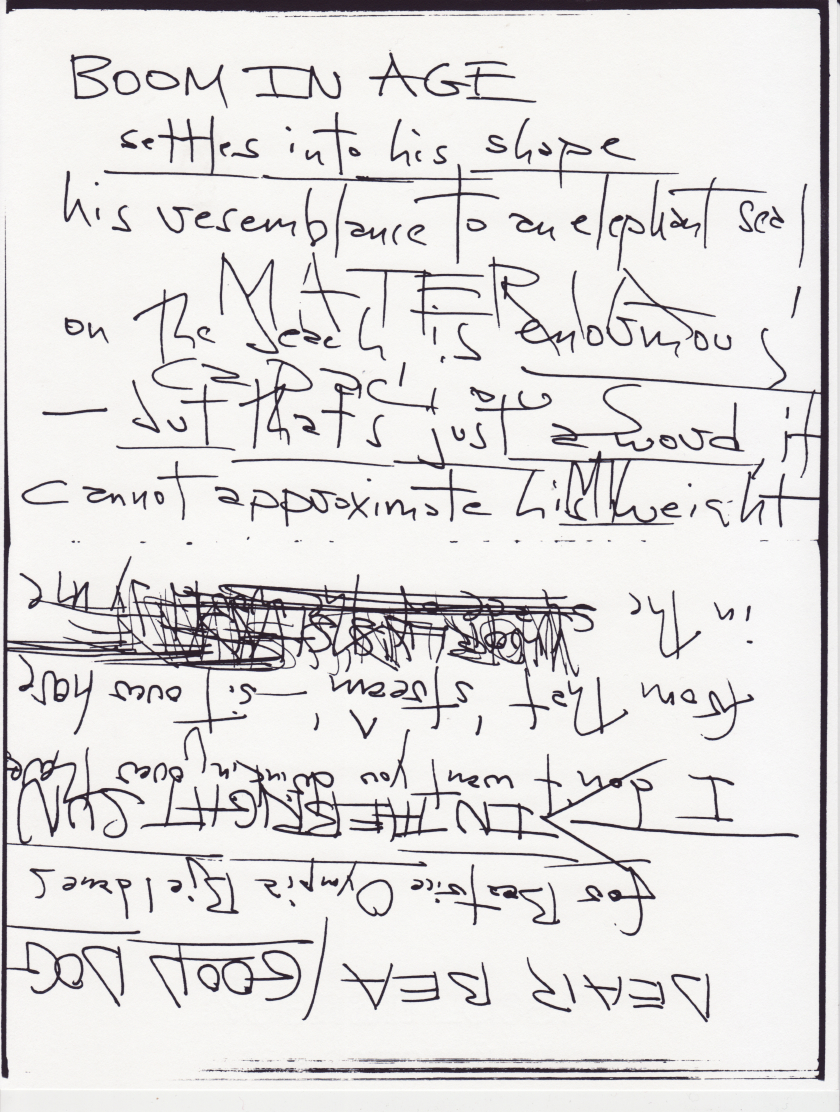 BOOM IN AGE
settles into his shape
his resemblance to an elephant seal
on the beach is enormous
— but that's just a word it
cannot approximate his weight
DEAR BEA / GOOD DOG
for Beatrice Olympia
IN THE BRIGHT SUN
I don't want you over
from that stream — sit over here
in the